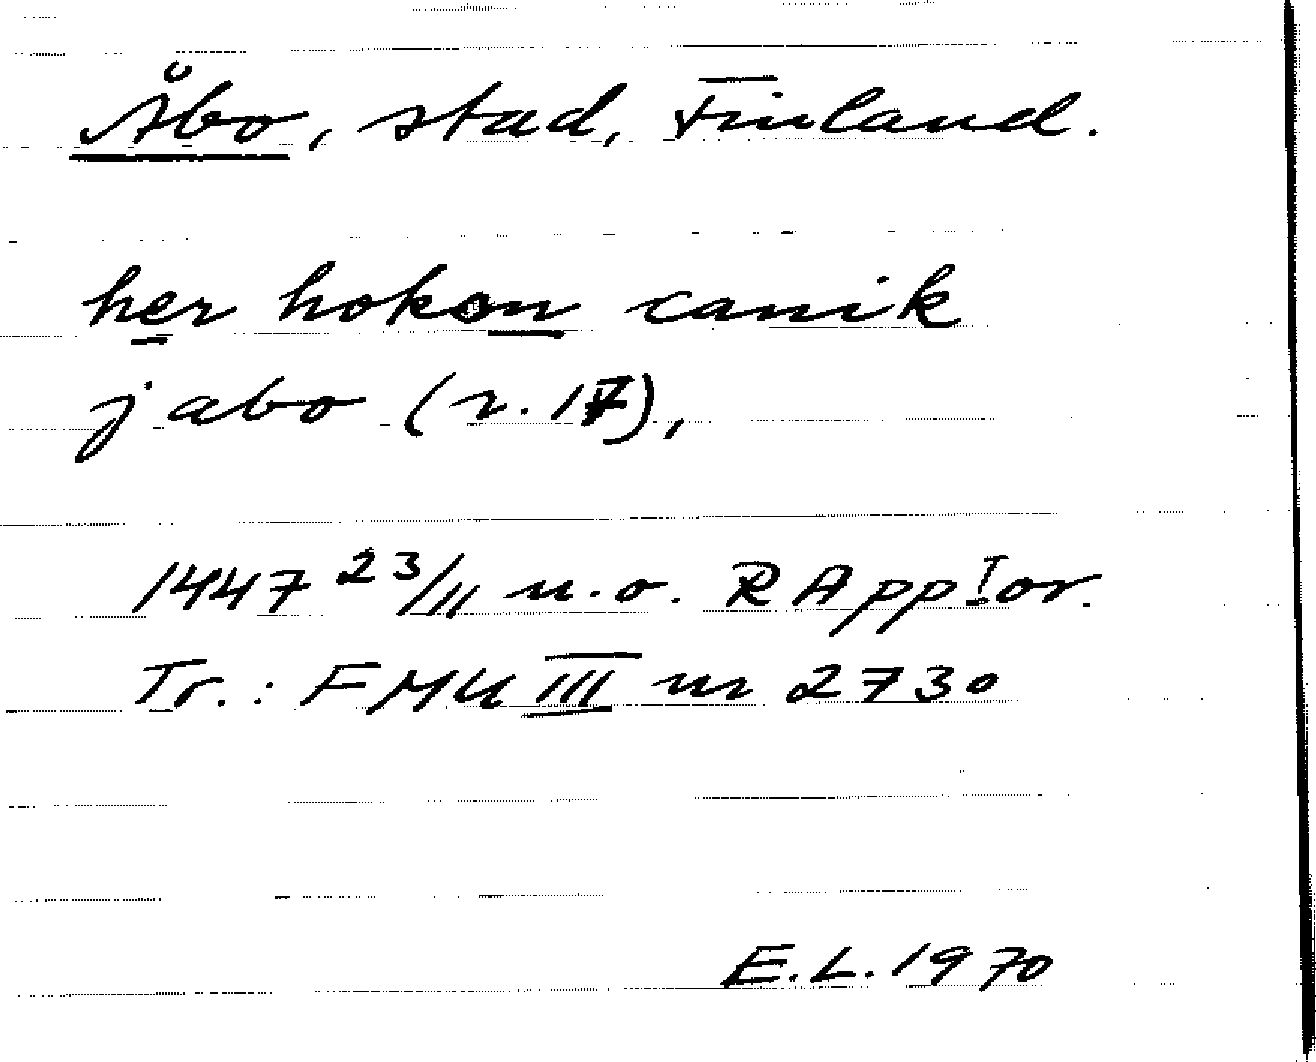 Åbo, stad, Finland.
her hokon canik
j abo (r. 17),
1447 23/11 u.o. RApp!or.
Tr.: FMU III nr 2730
E.L. 1970